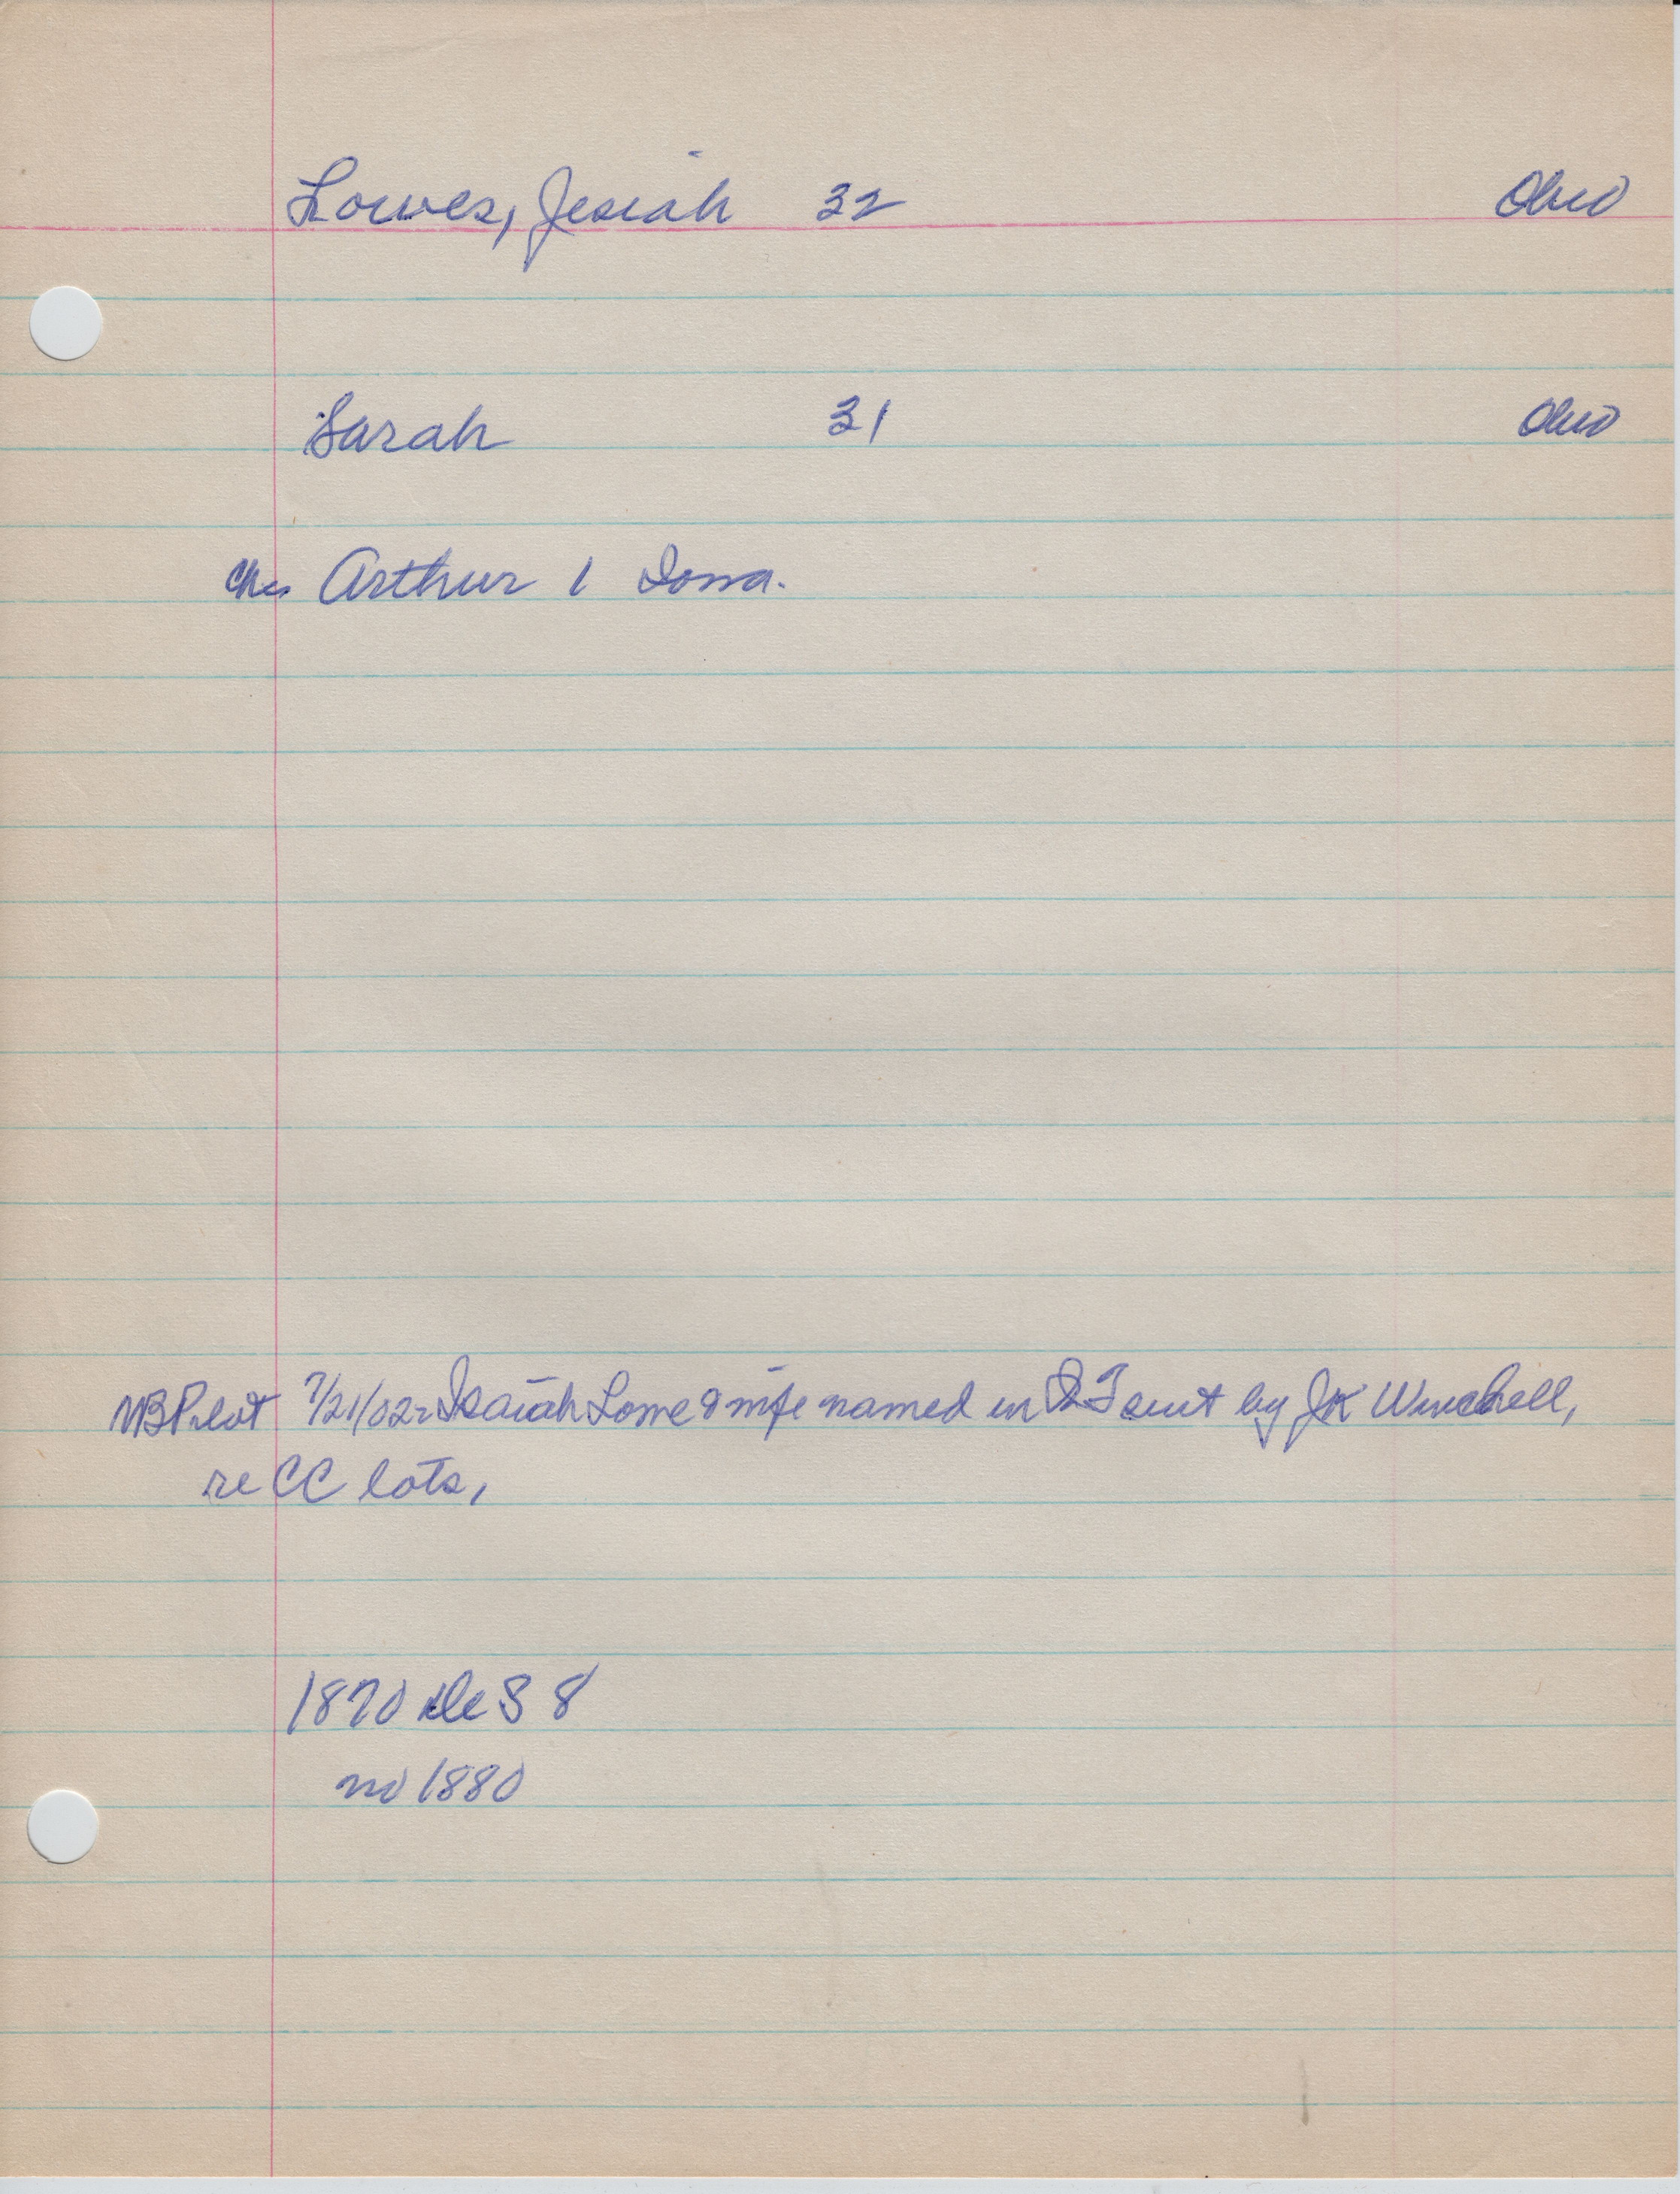 Lowes, Jesiah 32 Ohio
Sarah 31 Ohio
Chn Arthur 1 Iowa.
NB Pilot 7/21/02 = Isaiah Lowe & wife named in QT suit by JK Winchell,
re CC lots,
1870 de S 8
no 1880